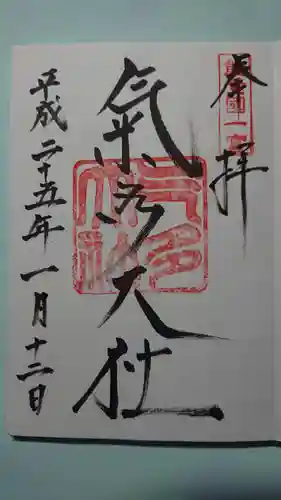 奉拝
能登國一宮
氣多大社
平成二十五年一月十二日